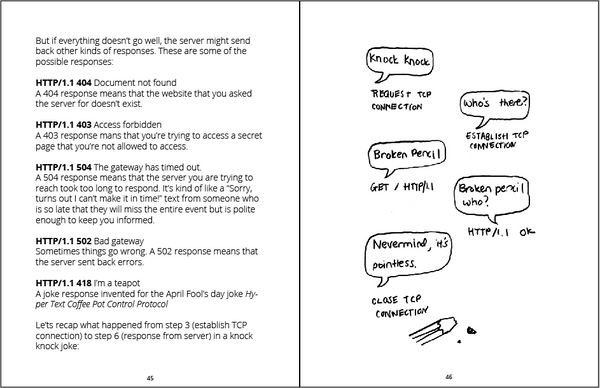 But if everything doesn't go well, the server might send
back other kinds of responses. These are some of the
possible responses:
HTTP/1.1 404 Document not found
A 404 response means that the website that you asked
the server for doesn't exist.
HTTP/1.1 403 Access forbidden
A 403 response mans that you're trying to access a secret
page that you're not allowed to access.
HTTP/1.1 504 The gateway has timed out.
A 504 response means that the server you are trying to
reach took too long to respond. It's kind of like a "Sorry,
turns out I can't make it in time!" text from someone who
is so late that they will miss the entire event but is polite
enough to keep you informed.
HTTP/1.1 502 Bad gateway
Sometimes things go wrong. A 502 response means that
the server sent back errors.
HTTP/1.1 418 I'm a teapot
A joke response invented for the April Fool's day joke Hy-
per Text Coffee Pot Control Protocol
Let's recap what happened from step 3 (establish TCP
connection) to step 6 (response from server) in a knock
knock joke:
45
Knock Knock
REQUEST TCP
CONNECTION
Who's there?
ESTABLISH TCP
CONNECTION
Broken Pencil
GET / HTTP/1.1
Broken pencil
who?
HTTP/1.1 OK
Nevermind, it's
pointless.
CLOSE TCP
CONNECTION
46